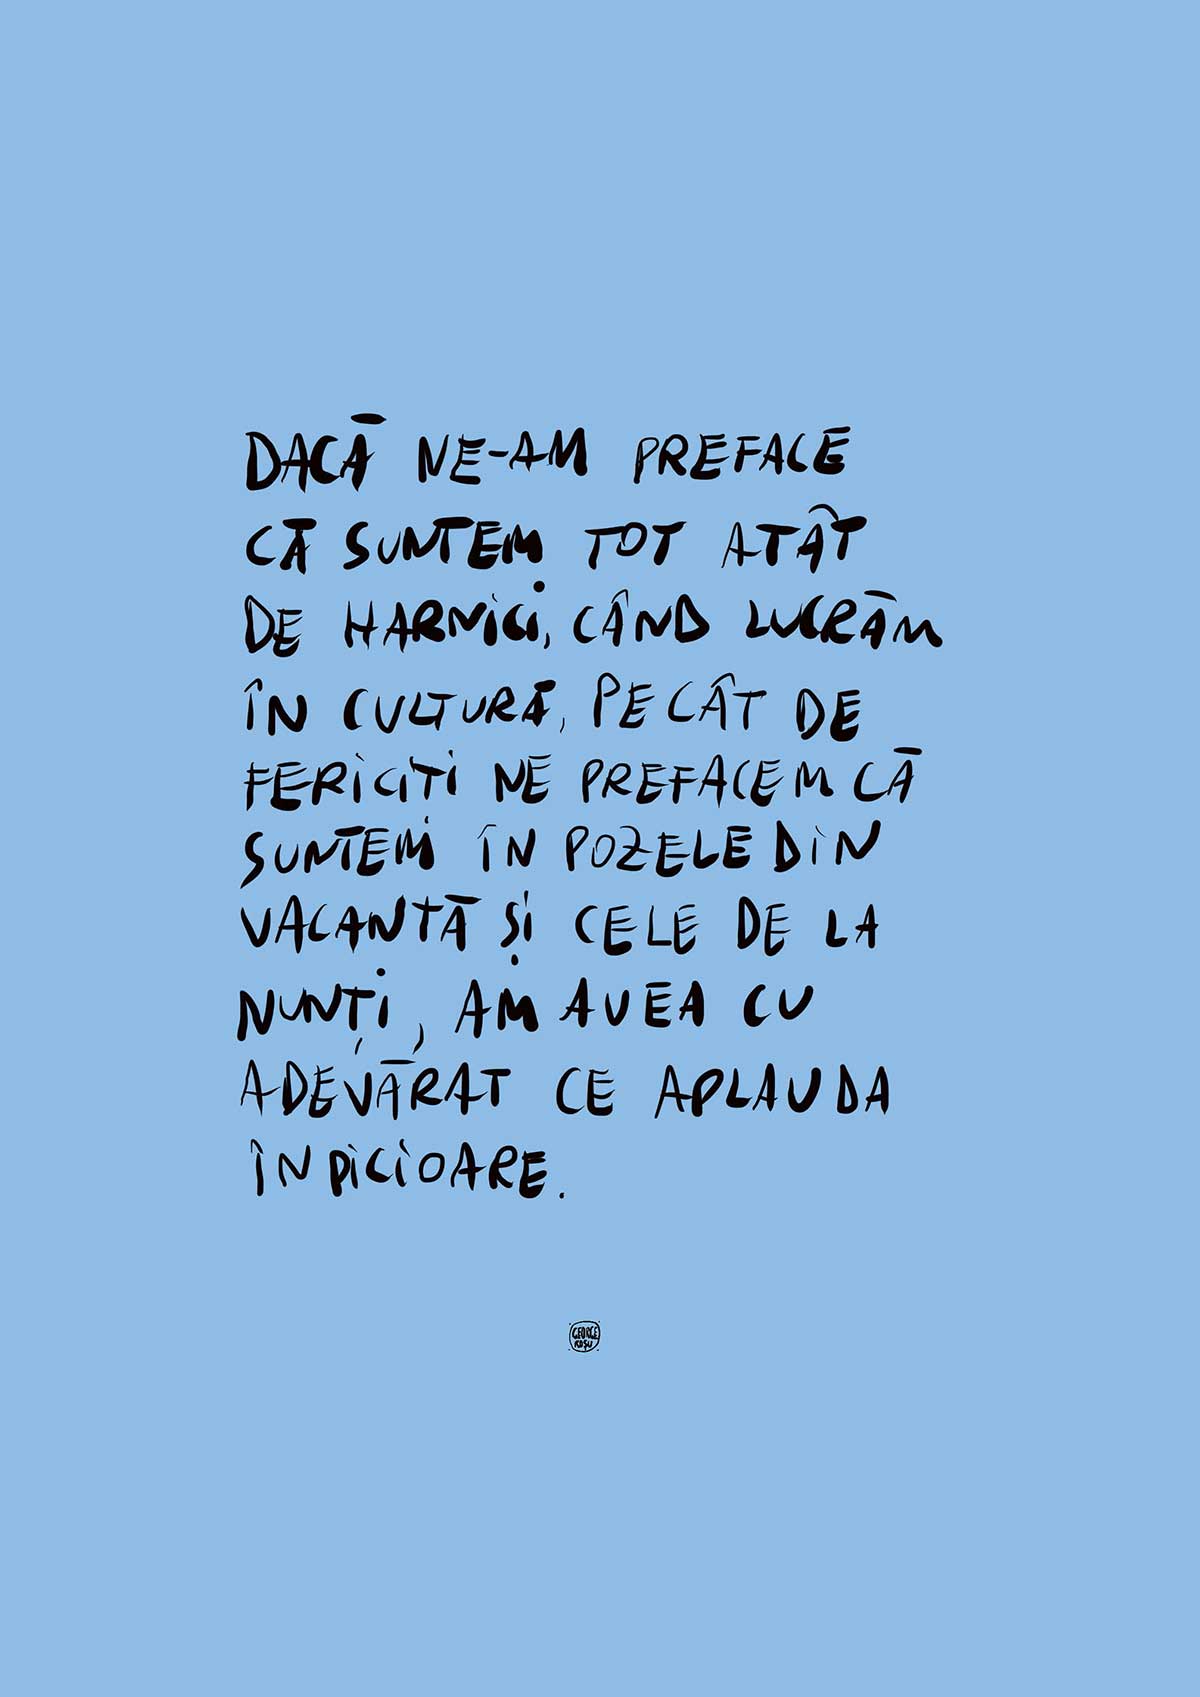 DACĂ NE-AM PREFACE
CĂ SUNTEM TOT ATÂT
DE HARNICI, CÂND LUCRĂM
ÎN CULTURĂ, PE CÂT DE
FERICIȚI NE PREFACEM CĂ
SUNTEM ÎN POZELE DIN
VACANȚĂ ȘI CELE DE LA
NUNȚI, AM AVEA CU
ADEVĂRAT CE APLAUDA
ÎN PICIOARE.
GEORGE
ROȘU